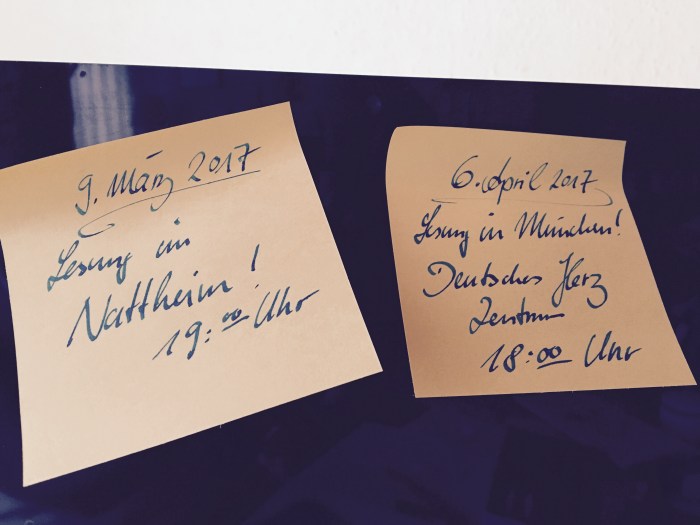 9. März 2017
Lesung in
Nattheim!
19:00 Uhr
6. April 2017
Lesung in München!
Deutsches Herz
Zentrum
18:00 Uhr